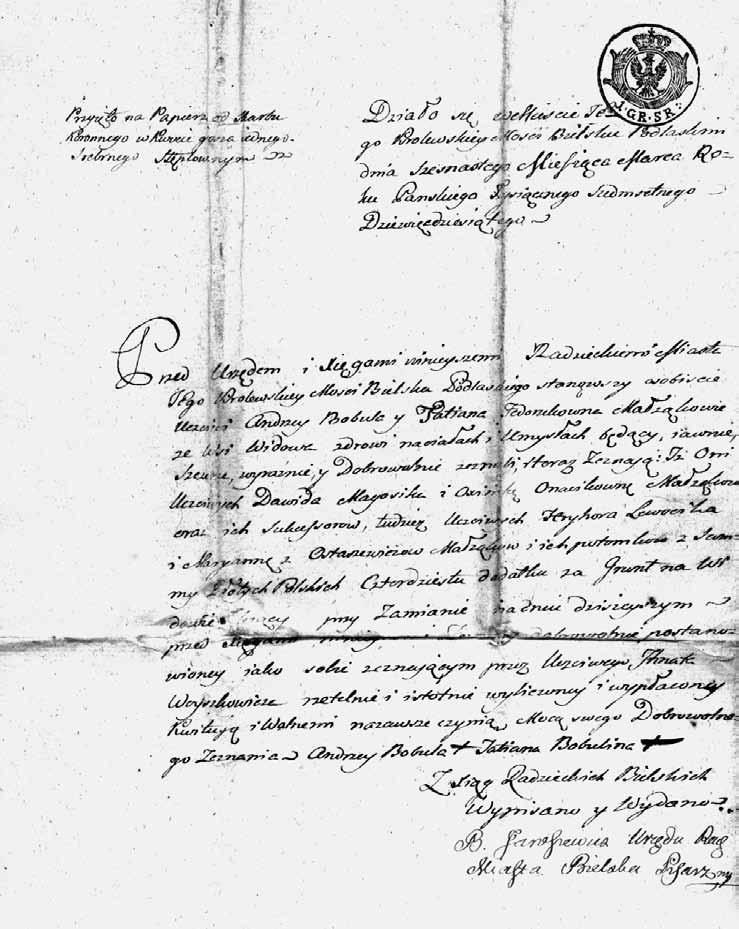 Przyięto na Papierze od Skarbu
Koronnego w Kursie grosza iednego
Srebrnego Stęplownym
I. GR. SR:
Działo się w Mieście Je-
go Krolewskiey Mości Bielsku Podlaskim
dnia szesnastego Miesiąca Marca Ro-
ku Panskiego Tysiącznego siedmsetnego
Dziewięcdziesiątego
Przed Urzędem i Xięgami ninieyszemi Radzieckiemi Miasta
Jego Krolewskiey Mosci Bielska Podlaskiego stanąwszy osobiscie
Uczciwi Andrzey Bobula y Tatiana Fedorukowna Małżąkowie
ze Wsi Widowa zdrowi na ciałach i Umysłach będący, iawnie,
szczerze, wyraźnie, y Dobrowolnie zeznali, i teraz Zeznaią: Iż Oni
Uczciwych Dawida Magosika i Onacikownę Małżąkow
oraz ich Sukcessorow, tudzież Uczciwych Hryhora Lewocika
i Maryannę z Ostaszewiczow Małżąkow i ich potomkow z Sum-
my złotych Polskich Czterdziestu dodatku za Grunt na Wsi
przy Zamianie na dniu dzisieyszym
przed Xięgami dobrowolnie postano-
wioney iako sobie zeznaiącym przez Uczciwego Ihnata
Woyszkowicza rzetelnie i istotnie wyliczoney i wypłaconey
kwituią i Wolnemi na zawsze czynią Mocą swego Dobrowolne-
go Zeznania Andrzey Bobula + Tatiana Bobulina +
Z Xiąg Radzieckich Bielskich
Wypisano y Wydano
Urzędu Radz
Miasta Bielska Pisarz